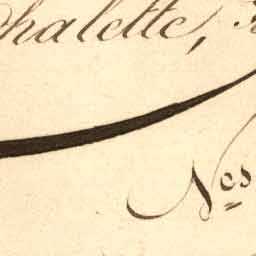 halette,
Nos